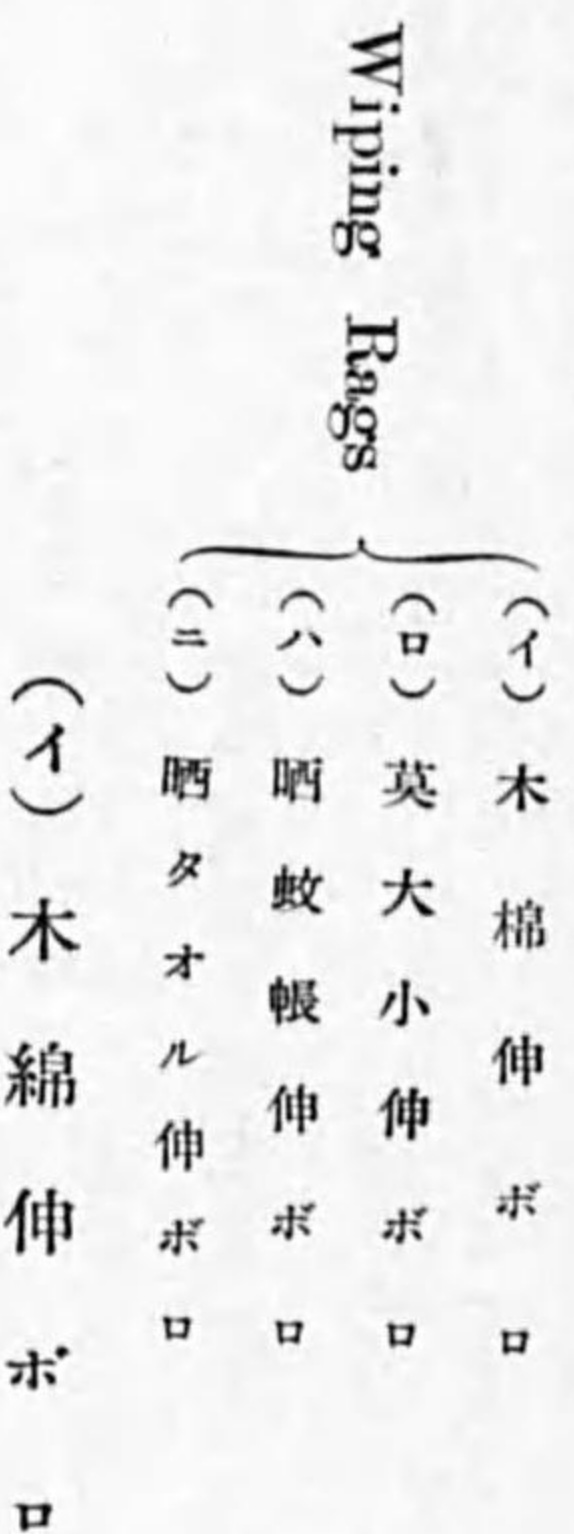 Wiping Rags
(イ) 木棉伸ボロ
(ロ) 莫大小伸ボロ
(ハ) 晒蚊帳伸ボロ
(ニ) 晒タオル伸ボロ
(イ) 木綿伸ボロ